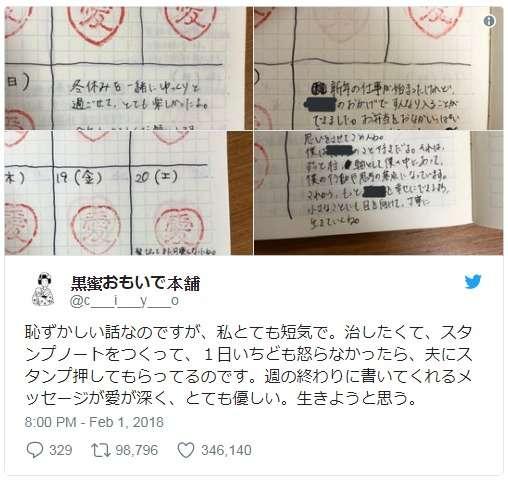 愛
愛
愛
愛
日)
冬休みを一緒にゆっくりと
過ごせて、とても楽しかったよ。
新年の仕事が始まったけれど、
のおかげですんなり入ることが
できました。お弁当も
思いをさせてごめんね。
僕は
僕の行動や思考の
幸せにできるよう、
小さなことにも目を向けて、丁寧に
生きていくね。
木)
19(金)
20(土)
愛
愛
愛
黒蜜おもいで本舗
@c___i___y___o
恥ずかしい話なのですが、私とても短気で。治したくて、スタ
ンプノートをつくって、１日いちども怒らなかったら、夫にス
タンプ押してもらってるのです。週の終わりに書いてくれるメ
ッセージが愛が深く、とても優しい。生きようと思う。
8:00 PM - Feb 1, 2018
329
98,796
346,140